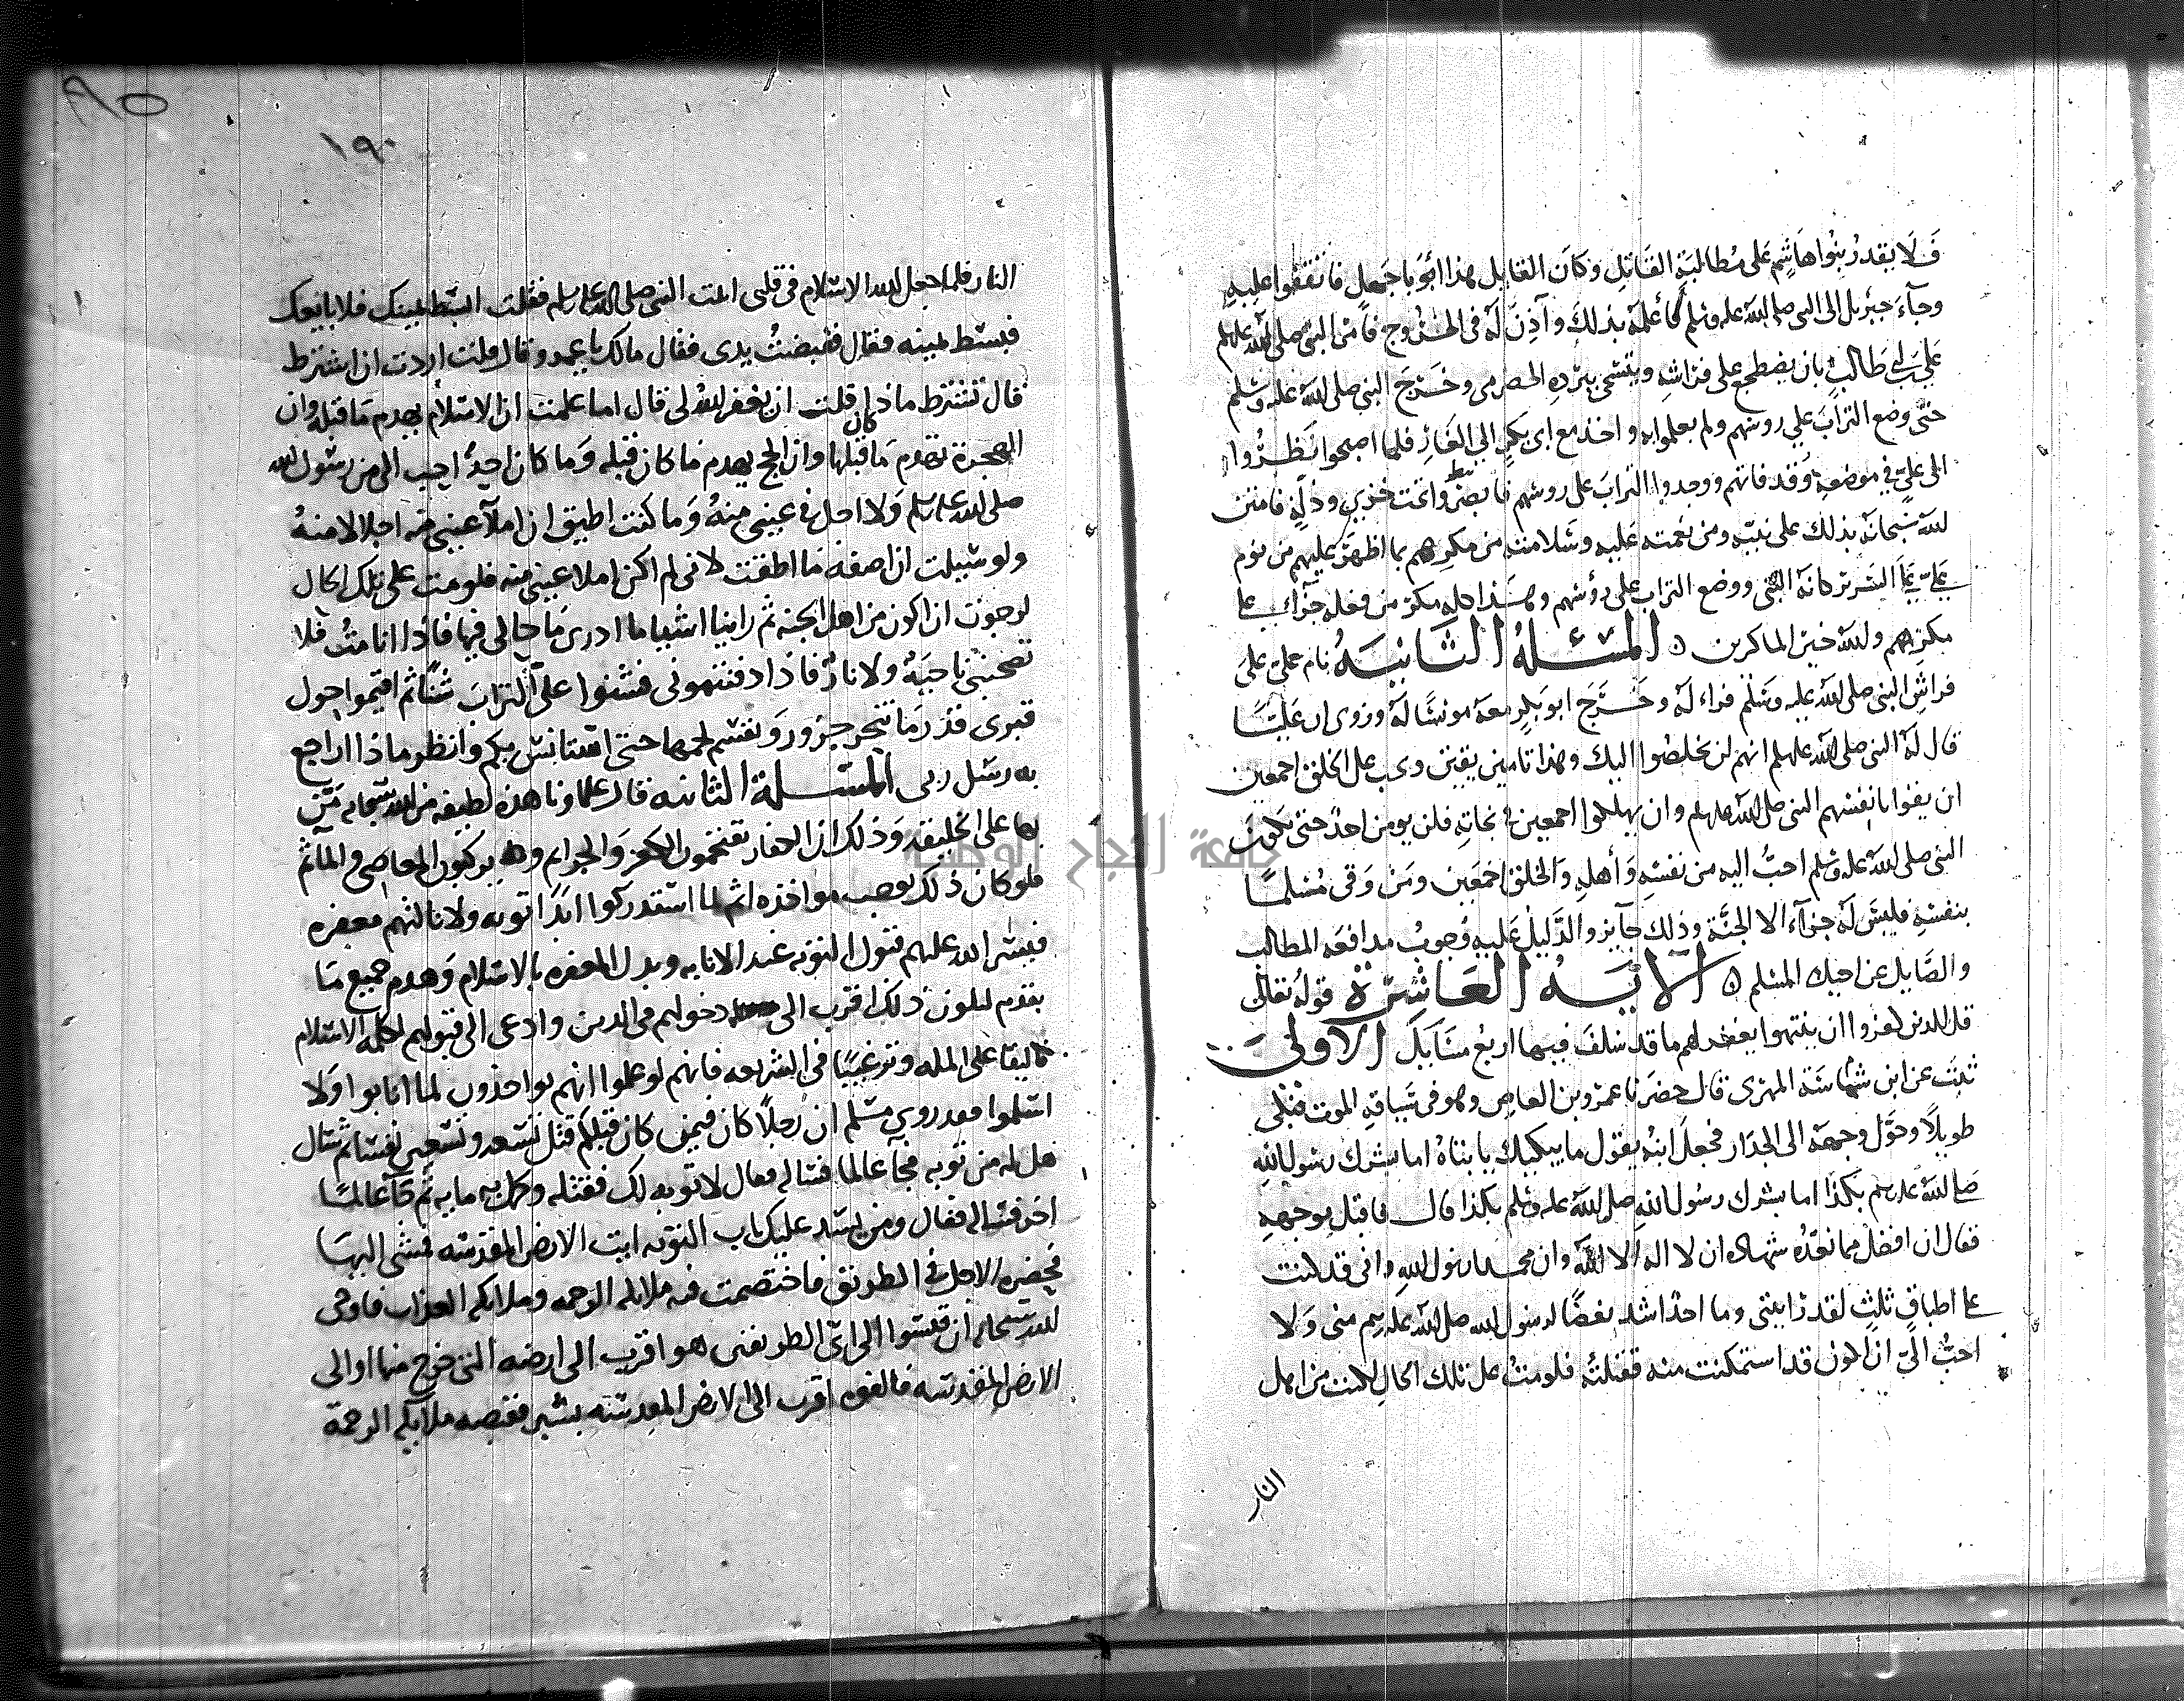 فَلَا يقدرُ بنُوا هَاشِم عَلى مُطالبَةِ القَاتِل وكَانَ القايل بهذا ابُو باجَهل فاتفقوا عليهِ
وجآءَ جبرَيل الى النبى صلى الله عله وسلم فأعلمَهُ بذلكَ وآذِنَ لَهُ فى الخرُوج فأمَرَ النبى صلى الله علىهلم
عَلى بن ابى طَالبٍ بان يضطجع على فراشِهِ ويتسَجى ببُرْدِهِ الحضرمى وخَرَجَ النبى صلى الله عله وسلم
حتّى وضعَ الترابَ على روسَهم ولم يعلموا به واخذ مع ابى بكرٍ الى الغَارِ فلما اصبحوا نَظرُوا
الى علىّ فى موضعِهِ وَقد فاتهم ووجدوا الترابَ على روسهم
لله سُبحانَهُ بذلك على نبيّه ومن نعمته عَليهِ وسَلامته من مكرهم بما اظهَرَ عليهم من نوم
عَلىّ عَلى السَرير كانه النبى ووضع التراب على رؤسهم وهَذا كله مكرٌ من فعله جزآء على
مكرهم والله خيرُ الماكرين ٥ المسئلةُ الثانيَةُ نام علىّ عَلى
فراشِ النبى صلى الله عليه وسَلم فداء لَهُ وخَرَج ابو بَكرٍ معهُ مونسًا لَهُ وروى ان عَليًا
قال لَهُ النبى صلى الله علهلم انهم لن يخلصُوا اليك وهذا تامين يقين ويجب على الخلق اجمعين
ان يقوا بانفسهم النبى صلى الله علهلم وان يهلكوا اجمعين فى نجاتِهِ فلن يومن احدٌ حتى يَكونَ
النبى صلى الله عله وسلم احبُّ اليه من نفسِهِ وَأهلِهِ وَالخلقِ اجمَعين ومَن وَقى مُسْلمًا
بنفسِهِ فليسَ لَهُ جزآء الا الجَنَّة وذلك جَآيز والدَّليلُ عَليهِ وُجوبُ مدافعَه المطالب
والصَّايل عن اخيك المسْلم ٥ الآيَةُ العَاشِرَة قولهُ تعَالى
قل للذين كفروا ان ينتهوا يغفر لهم ما قد سَلفَ فيها اربعُ مسَآيلَ الاولى
ثبتَ عن ابن شمَاسَة المهرى قال حضرَنا عمرَو بن العاصِ وهو فى سَياقِه الموت فبَكى
طويلاً وحَوَّل وجهَهُ الى الجدَار فجعلَ ابنُهُ يقول ما يبكيك يا بتاهُ اما بشرك رسُول الله
صلى الله علهسلم بكذا اما بشرك رسُول اللهِ صلى الله عله وسلم بكذا قال فاقبل بوجههِ
فقال ان افضل مما نعدُّه شهاده ان لا اله الا الله وان محمدا رسول الله وانى قد كنت
على اطباقٍ ثلثٍ لقد رَايتنى وما احدٌ اشد بغضًا لرسول الله صلى الله علهسلم منى وَلا
احبُّ الىّ ان اكون قد استمكنت منه فقتلتُه فلو متُ على تلك الحالِ لكنت من اهل
النار
٩٥
١٩٠
النار فلما جعل الله الاسْلام فى قلبى اتيت النبى صلى الله علىه سلم فقلت ابسُط يمينك فلابايعك
فبسَط يمينه فقال فقبضتُ يدى فقال مالك يا عمرو قال قلت اردت ان اشترط
قال تشترط ماذا قلت ان يغفر الله لى قال اما علمت ان الاسْلام يهدم مَا قبله وان
الهجرة تهدم مَا كان قبلها وان الحج يهدم ما كان قبله وَما كان احدٌ احب الى من رسُول الله
صلى الله علىه سلم وَلا اجل فى عينى منهُ وَما كنت اطيق ان املآ عينى منه اجلالا منهُ
ولو سُيلت ان اصفه ما اطقت لانى لم اكن املا عينى منه فلو مت على تلك الحال
لرجوت ان اكون من اهل الجنه ثم راينا اشيا ما ادرى مَا حالى فيها فاذا انا متُ فلا
تصحبنى نايحَةٌ ولا نارٌ فاذا دفنتمونى فشنوا علىّ الترابَ شنًّا ثم اقيموا حول
قبرى قدرَ مَا تنحر جزور وَ يقسَم لحمها حتى استانسَ بكم وانظر ماذا اراجع
به رسل ربى المسئلة الثانيه قال علماونا هذه لطيفه من الله سُبحانه مَنّ
بها على الخليقه وَذلك ان الكفار يقتحمون الكفر وَالجرايم وَ يركبون المعاصى والمآثم
فلو كان ذلك يوجب مواخذه لهم لما استدركوا ابدًا توبه ولا نالتهم مغفره
فيسَّر الله عليهم قبول التوبه عند الانابه وبذل المغفره بالاسْلام وَهدم جميع مَا
تقدم ليكون ذلك اقرب الى دخولهم فى الدين وادعى الى قبولهم كلمه الاسْلام
تاليفا على المله وترغيبًا فى الشريعه فانهم لو علموا انهم يواخذون لما انابوا وَلا
اسْلموا فقد روى مسْلم ان رَجلاً كان فيمن كان قبلكم قتل تسْعه وتسعين نفسًا ثم سَال
هل له من توبه فجآ عالما فسَاله فقال لا توبه لك فقتله وكمل به مايه ثم جَآ عالمًا
اخر فسَاله فقال ومن يسد عليك باب التوبه ايت الارض المقدسه فمشى اليهَا
فحضره الاجل فى الطريق فاختصمت فيه ملايكه الرحمه وملايكه العذاب فاوحى
الله سبحانه ان قيسوا الى اىّ الطريقين هو اقرب الى ارضه التى خرج منها او الى
الارض المقدسه فالفوه اقرب الى الارض المقدسَه بشبر فقبضه ملايكه الرحمة
جامعة النجاح الوطنية